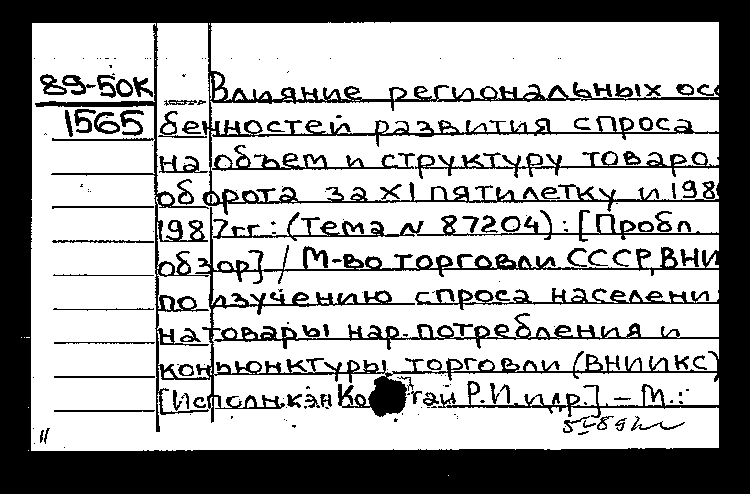 89-50К Влияние региональных осо
1565 бенностей развития спроса
на объем и структуру товаро-
оборота за XI пятилетку и 198
1987 гг.: (Тема N 87204): [Пробл.
обзор] / М-во торговли СССР, ВНИ
по изучению спроса населени
на товары нар. потребления и
конъюнктуры торговли (ВНИИКС)
[Исполн. к.эн Р.И. и др.]. – М.:
11